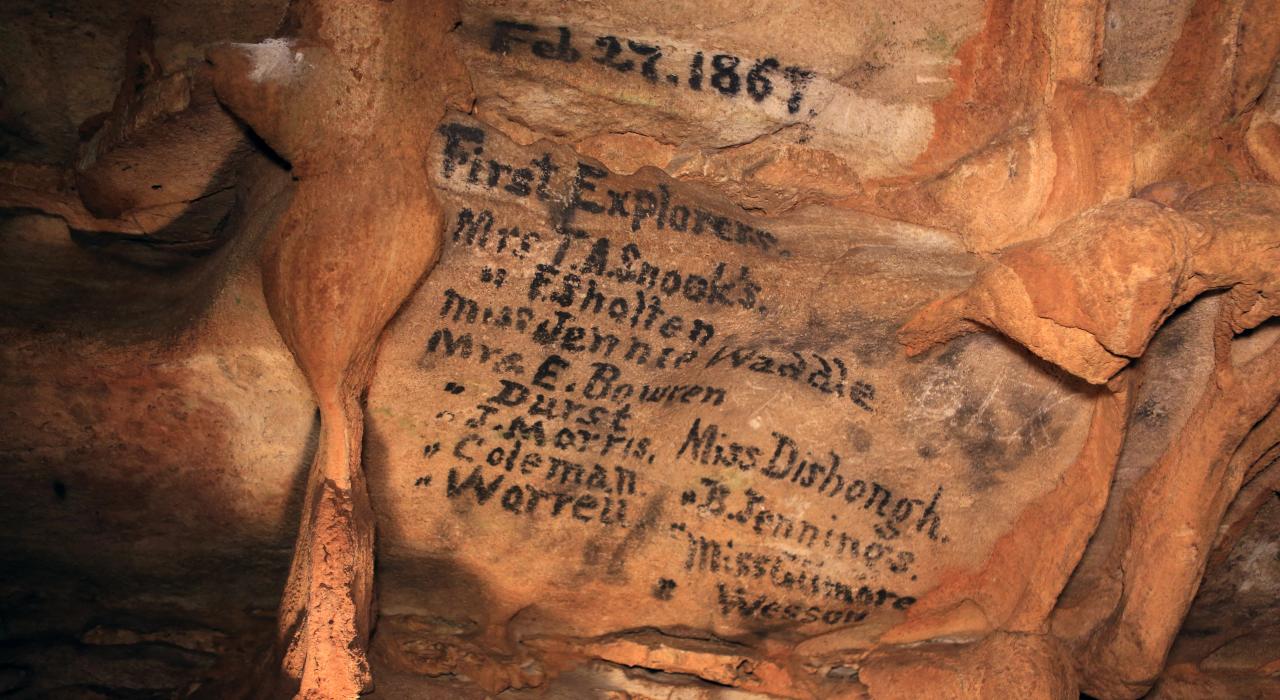 Feb 27. 1867.
First Explorers.
Mrs T.A. Snook's.
" F. Sholten
Miss Jennie Waddle
Mrs E. Bowren
" Durst
" J. Morris.
" Coleman.
" Warren
Miss Dishongh.
" B. Jennings.
" Miss Gilmore
" Wesson